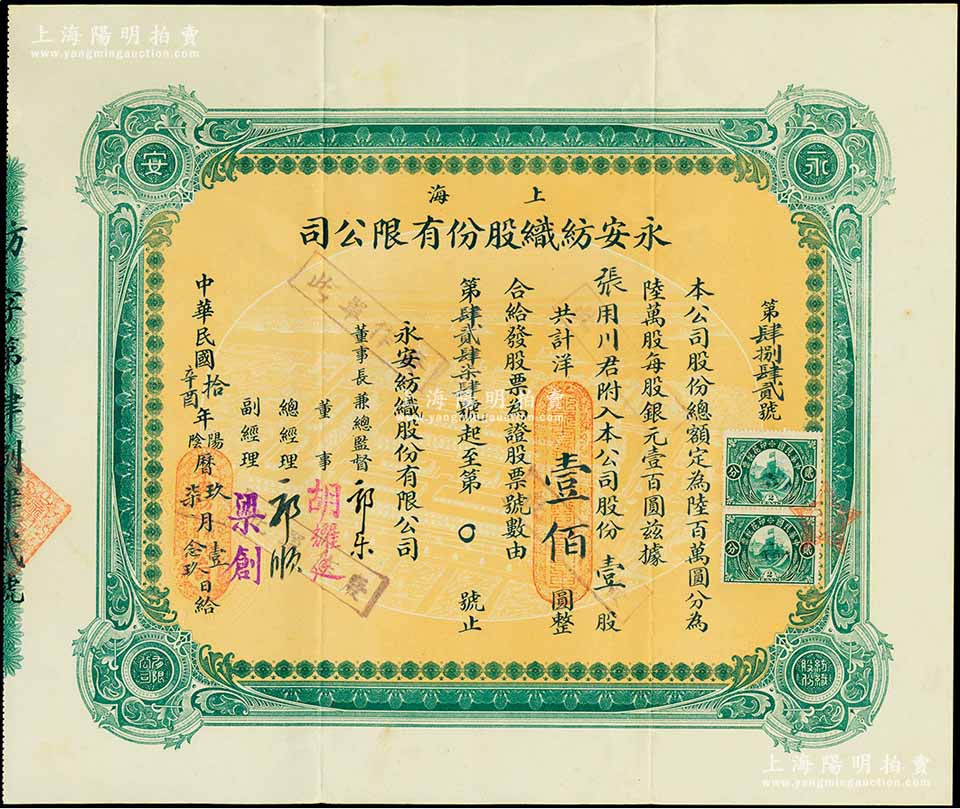 上海陽明拍賣
www.yangmingauction.com
永
安
上海
永安紡織股份有限公司
第肆捌肆貳號
本公司股份總額定為陸百萬圓分為
陸萬股每股銀元壹百圓茲據
張用川君附入本公司股份壹股
共計洋壹佰圓整
合給發股票為證股票號數由
第肆貳肆柒肆號起至第〇號止
永安紡織股份有限公司
董事長兼總監督 郭乐
董事
總經理 郭順
副經理 梁創
中華民國拾年陽曆玖月壹日給
辛酉陰柒念玖
紡織股份
有限公司
上海陽明拍賣
www.yangmingauction.com
上海陽明拍賣
www.yangmingauction.com